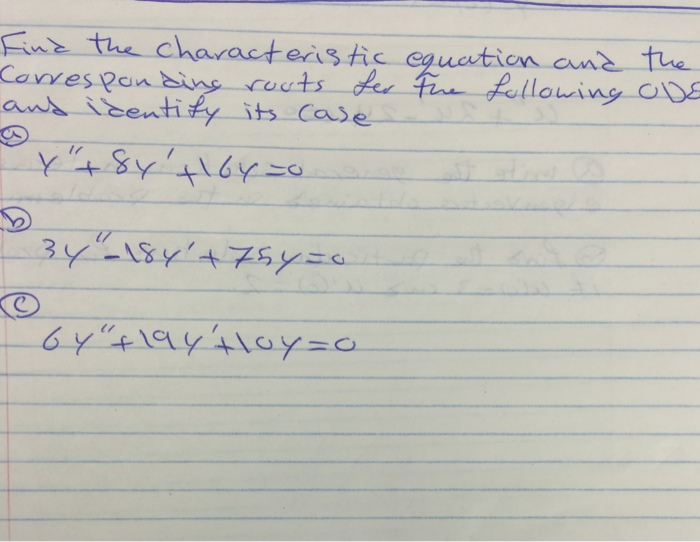 Find the characteristic equation and the
Corresponding roots for the following ODE
and identify its case
(a)
y"+8y'+16y=0
(b)
3y"-18y'+75y=0
(c)
6y"+19y'+10y=0